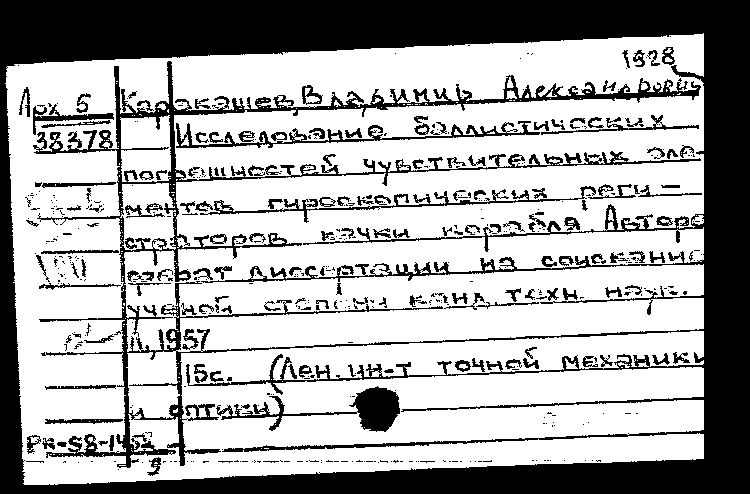 1928
Арх 5 Каракашев, Владимир Александрович
38378 Исследование баллистических
погрешностей чувствительных эле-
ментов гироскопических реги-
страторов качки корабля Авторе
ферат диссертации на соискание
ученой степени канд. техн. наук.
Л., 1957
15с. (Лен. ин-т точной механики
и оптики)
РК-58-1452
9